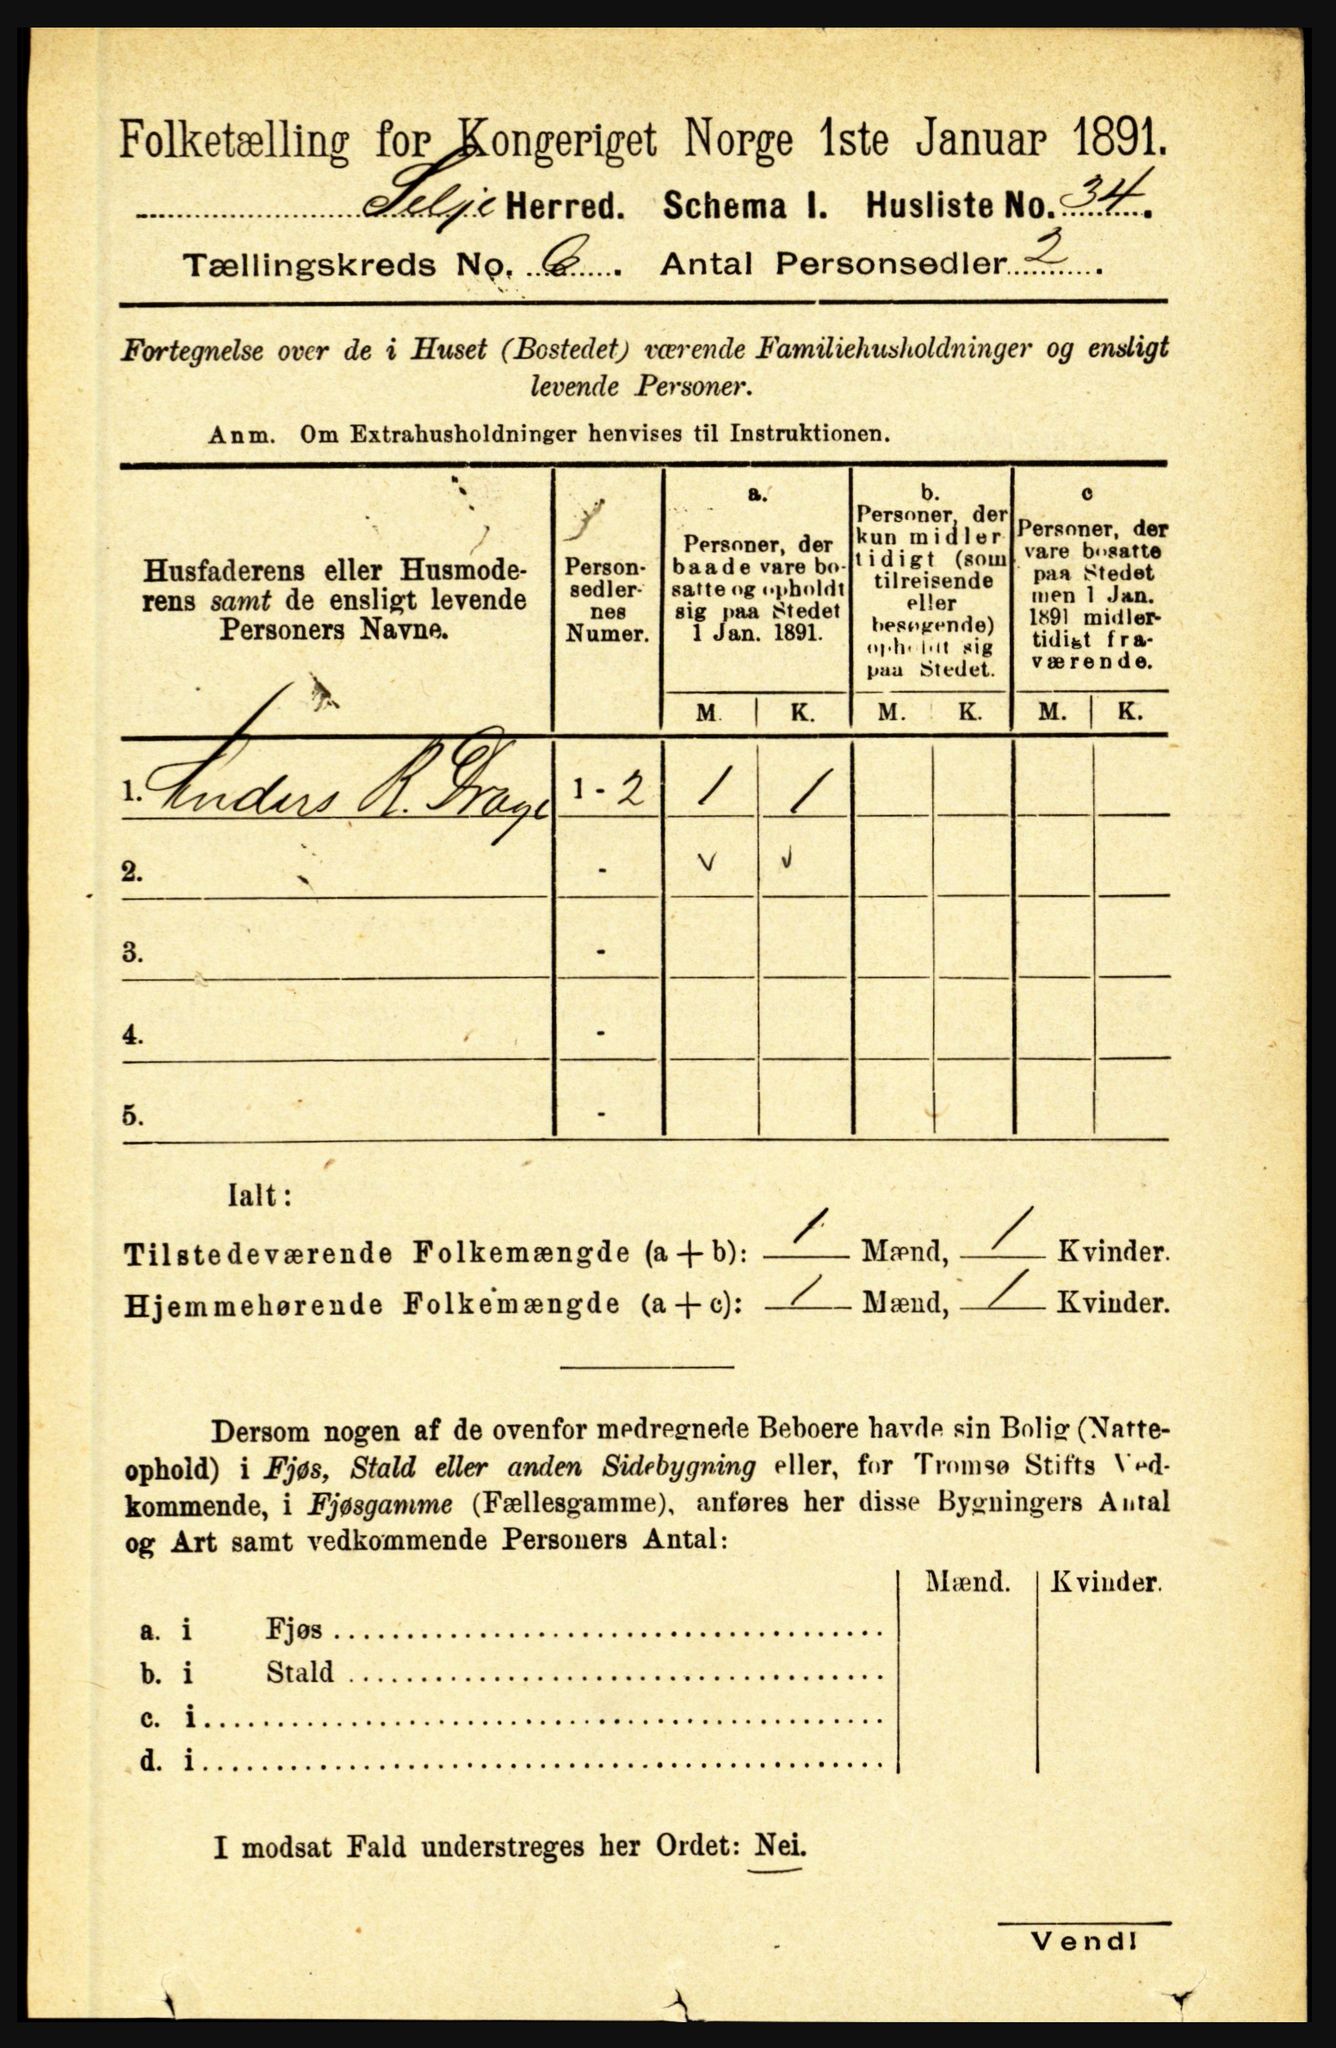 Folketælling for Kongeriget Norge 1ste Januar 1891.
Selje Herred. Schema I. Husliste No. 34.
Tællingskreds No. 6. Antal Personsedler 2.
Fortegnelse over de i Huset (Bostedet) værende Familiehusholdninger og ensligt
levende Personer.
Anm. Om Extrahusholdninger henvises til Instruktionen.
Husfaderens eller Husmode-
rens samt de ensligt levende
Personers Navne.
Person-
sedler-
nes
Numer.
a.
Personer, der
baade vare bo-
satte og opholdt
sig paa Stedet
1 Jan. 1891.
b.
Personer, der
kun midler
tidigt (som
tilreisende
eller
besøgende)
opholdt sig
paa Stedet.
c
Personer, der
vare bosatte
paa Stedet
men 1 Jan.
1891 midler-
tidigt fra-
værende.
M. K. M. K. M. K.
1. Anders R. Drage 1 - 2 1 1
2. - v v
3. -
4. -
5. -
Ialt:
Tilstedeværende Folkemængde (a + b): 1 Mænd, 1 Kvinder.
Hjemmehørende Folkemængde (a + c): 1 Mænd, 1 Kvinder.
Dersom nogen af de ovenfor medregnede Beboere havde sin Bolig (Natte-
ophold) i Fjøs, Stald eller anden Sidebygning eller, for Tromsø Stifts Ved-
kommende, i Fjøsgamme (Fællesgamme), anføres her disse Bygningers Antal
og Art samt vedkommende Personers Antal:
Mænd. Kvinder.
a. i Fjøs
b. i Stald
c. i
d. i
I modsat Fald understreges her Ordet: Nei.
Vend!